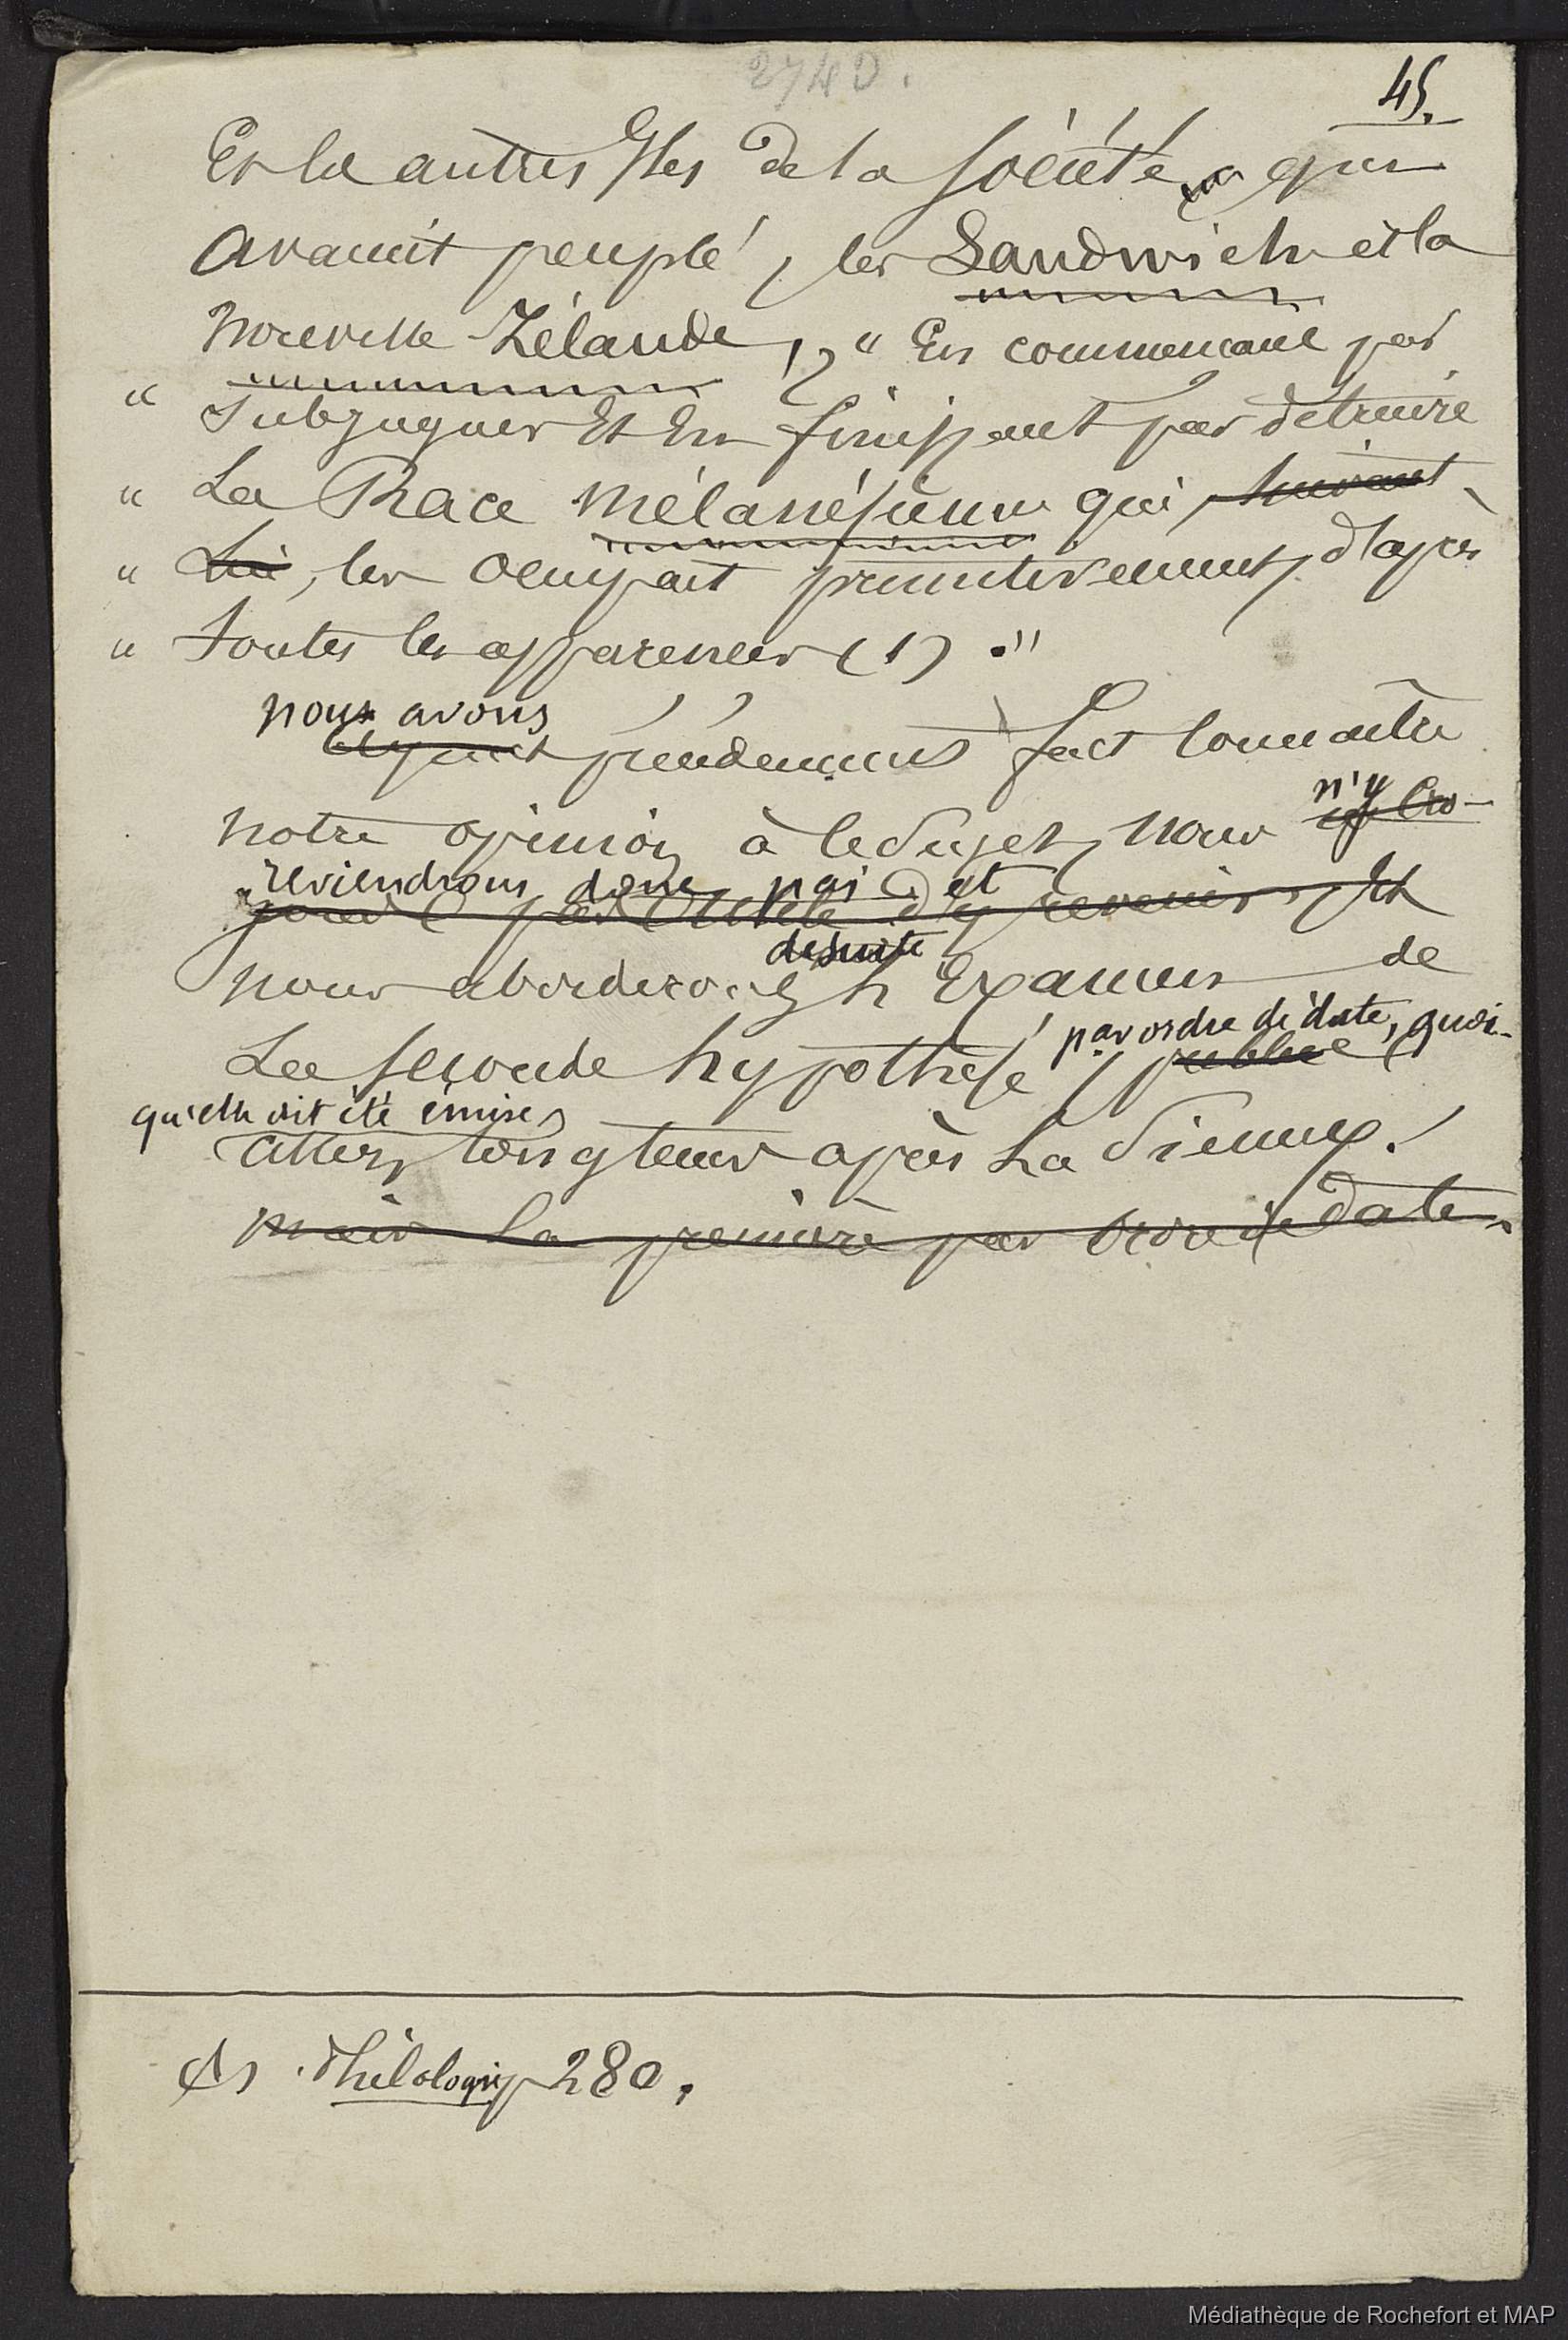 274D.
45.
Et les autres Iles de la Société, qui
avaient peuplé, les Sandwich et la
Nouvelle-Zélande, " En commencant par
" Subjuguer Et En finissant par détruire
" La Race Mélanésienne qui, suivant
" Lui, les occupait primitivement, d'après
" toutes les apparences (1) . "
nous avons
Ayant précédemment fait connaitre
notre opinion à ce Sujet, nous
n'y
reviendrons donc pas et
pas utile d'y revenir, Et
de suite
nous aborderons L'Examen de
par ordre de date, quoi-
La seconde hypothèse, publiée
qu'elle ait été émise
assez longtems après La Sienne.
mais la première par ordre de date.
(1) Philologie 280.
Médiathèque de Rochefort et MAP